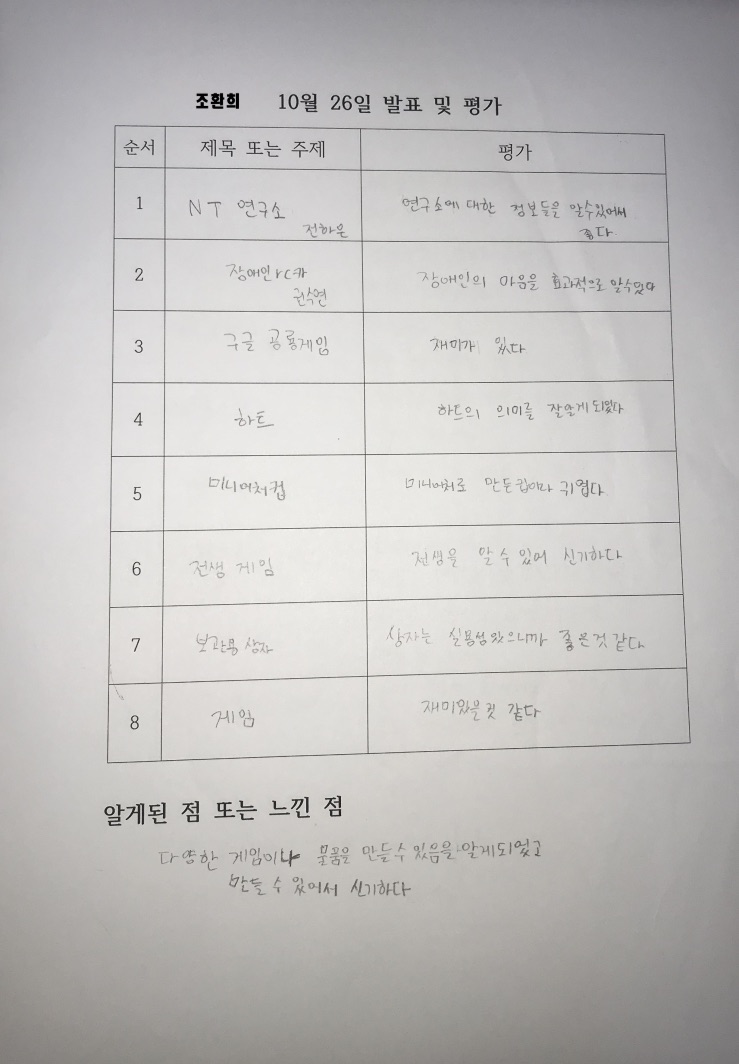 조환희 10월 26일 발표 및 평가
순서 제목 또는 주제 평가
1 NT 연구소 연구소에 대한 정보들을 알수있어서
전하은 좋다
2 장애인rc카 장애인의 마음을 효과적으로 알수있다
권수연
3 구글 공룡게임 재미가 있다
4 하트 하트의 의미를 잘알게되었다
5 미니어처컵 미니어처로 만든컵이라 귀엽다
6 전생 게임 전생을 알 수 있어 신기하다
7 보관용 상자 상자는 실용성있으니까 좋은것 같다
8 게임 재미있을것 같다
알게된 점 또는 느낀 점
다양한 게임이나 물품을 만들수 있음을 알게되었고
만들 수 있어서 신기하다